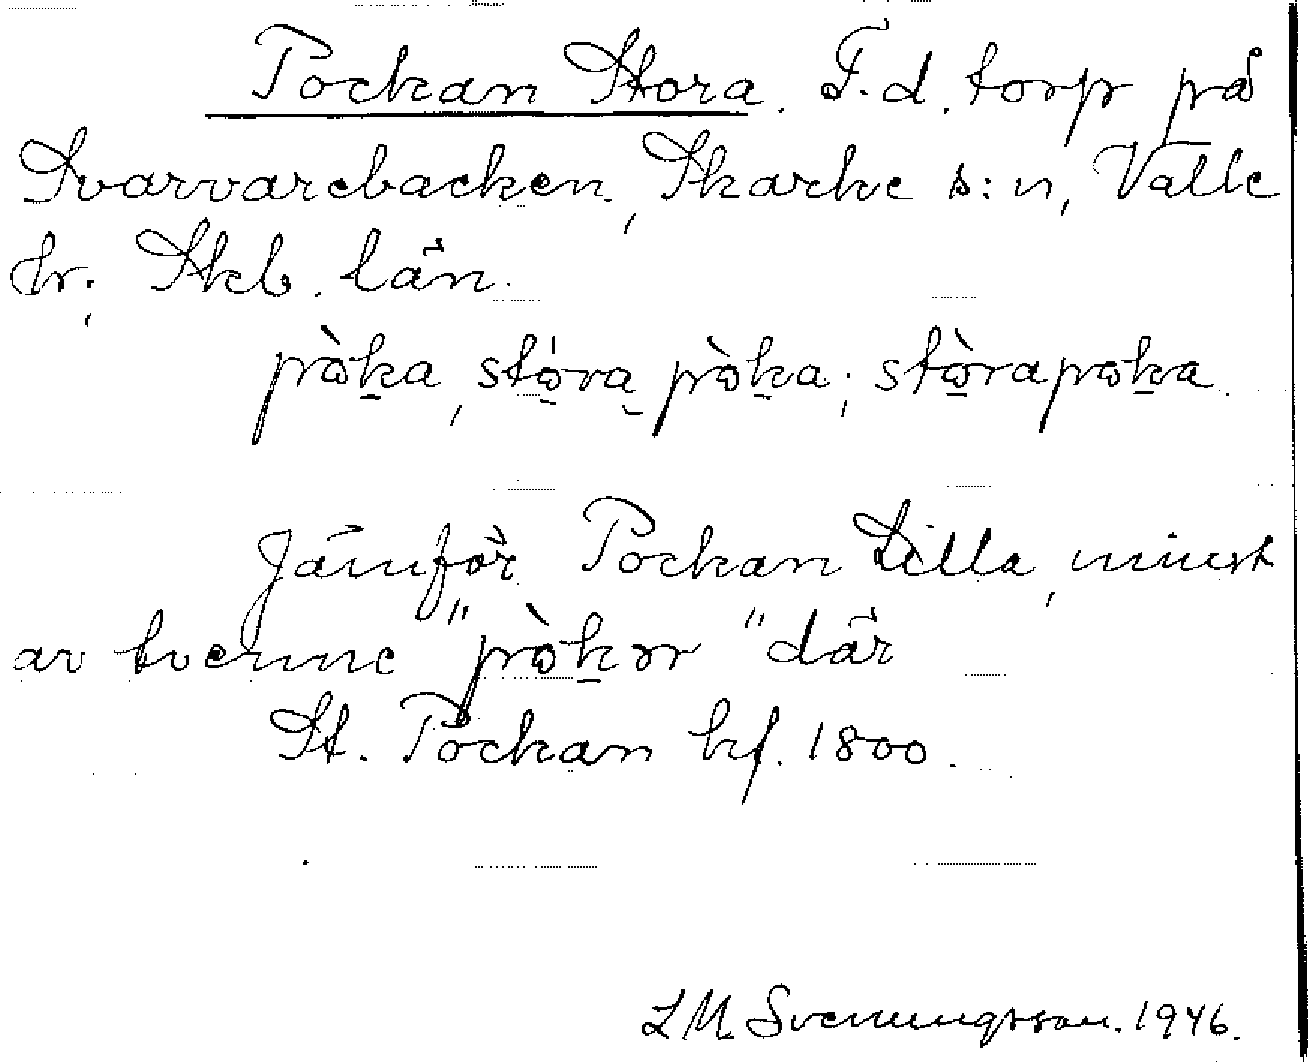 Pockan Stora. F.d. torp på
Svarvarebacken, Skarke s:n, Valle
hr., Skb. län.
pòka, stóra pòka; stòrapoka.
Jämför Pockan Lilla, minst
av tvenne "pòkor" där
St. Pockan hf. 1800.
L M Svenungsson. 1946.